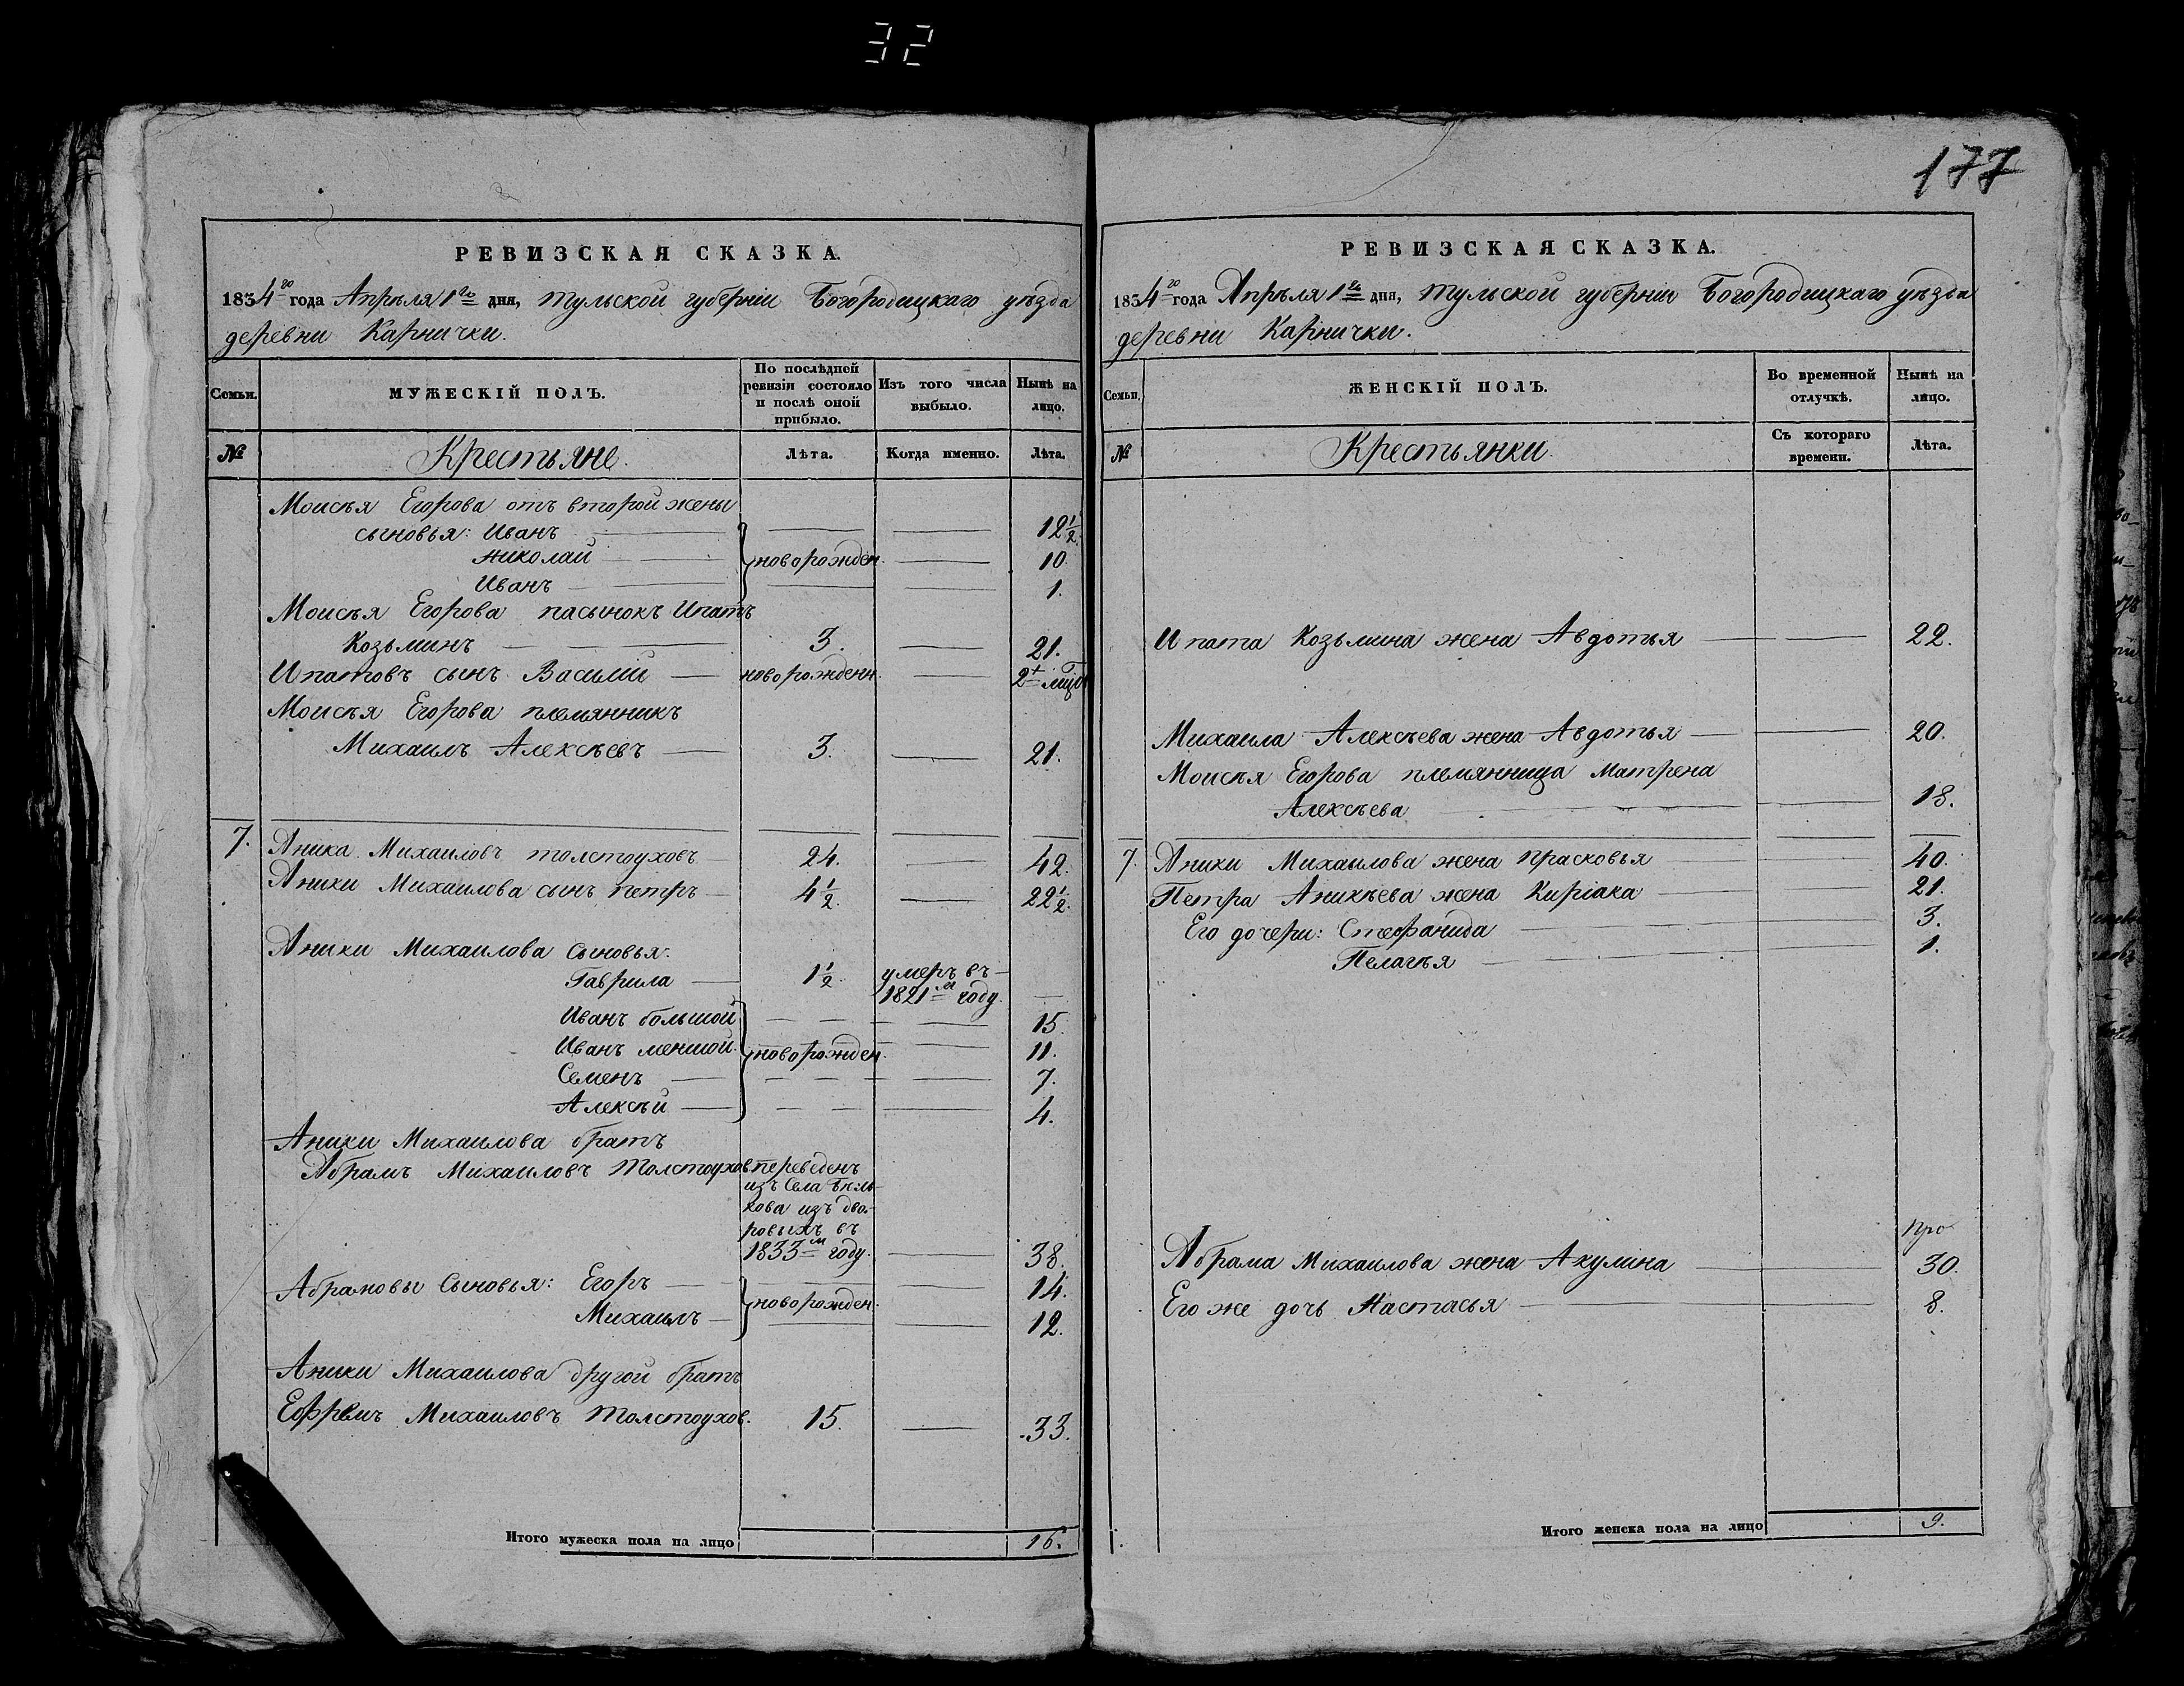 32
177
РЕВИЗСКАЯ СКАЗКА.
1834го года Апрѣля 1го дня, Тульской губерніи Богородицкаго уѣзда
деревни Карнички.
Семьи. МУЖЕСКІЙ ПОЛЪ. По послѣдней ревизіи состояло и послѣ оной прибыло. Изъ того числа выбыло. Нынѣ на лицо.
№ Крестьяне. Лѣта. Когда именно. Лѣта.
Моисѣя Егорова отъ второй жены
сыновья: Иванъ — — 12½.
Николай новорожден. — 10.
Иванъ — — 1.
Моисѣя Егорова пасынокъ Ипатъ
Козьминъ — 3. — 21.
Ипатовъ сынъ Василій — новорожденн. — 2
Моисѣя Егорова племянникъ
Михаилъ Алексѣевъ — 3. — 21.
7. Аника Михаиловъ Толстоуховъ — 24. — 42.
Аники Михаилова сынъ Петръ — 4½. — 22½.
Аники Михаилова сыновья:
Гаврила — 1½. умеръ въ
1821м году. —
Иванъ большой — — 15.
Иванъ меншой новорожден. — 11.
Семенъ — — — 7.
Алексѣй — — — 4.
Аники Михаилова братъ
Абрамъ Михаиловъ Толстоухов переведенъ
изъ села Бѣль-
кова изъ дво-
ровыхъ въ
1833м году. — 38.
Абрамовы сыновья: Егоръ — — 14.
Михаилъ — новорожден. — 12.
Аники Михаилова другой братъ
Ефремъ Михаиловъ Толстоухов. 15. — 33.
Итого мужеска пола на лицо 16.
РЕВИЗСКАЯ СКАЗКА.
1834го года Апрѣля 1го дня, Тульской губерніи Богородицкаго уѣзда
деревни Карнички.
Семьи. ЖЕНСКІЙ ПОЛЪ. Во временной отлучкѣ. Нынѣ на лицо.
№ Крестьянки. Съ котораго времени. Лѣта.
Ипата Козьмина жена Авдотья — — 22.
Михаила Алексѣева жена Авдотья — — 20.
Моисѣя Егорова племянница Матрена
Алексѣева — — 18.
7. Аники Михаилова жена Прасковья — 40.
Петра Аникѣева жена Киріака — — 21.
Его дочери: Стефанида — — 3.
Пелагѣя — — 1.
про
Абрама Михаилова жена Акулина — — 30.
Его же дочь Настасья — 8.
Итого женска пола на лицо 9.